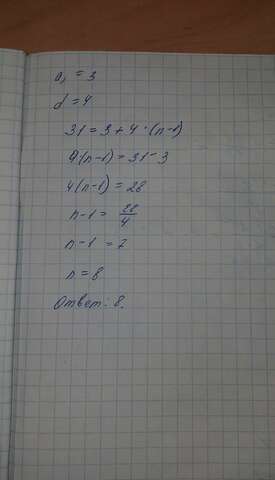 a₁ = 3
d = 4
31 = 3 + 4 · (n-1)
4(n-1) = 31 - 3
4(n-1) = 28
n-1 = 28/4
n-1 = 7
n = 8
Ответ: 8.